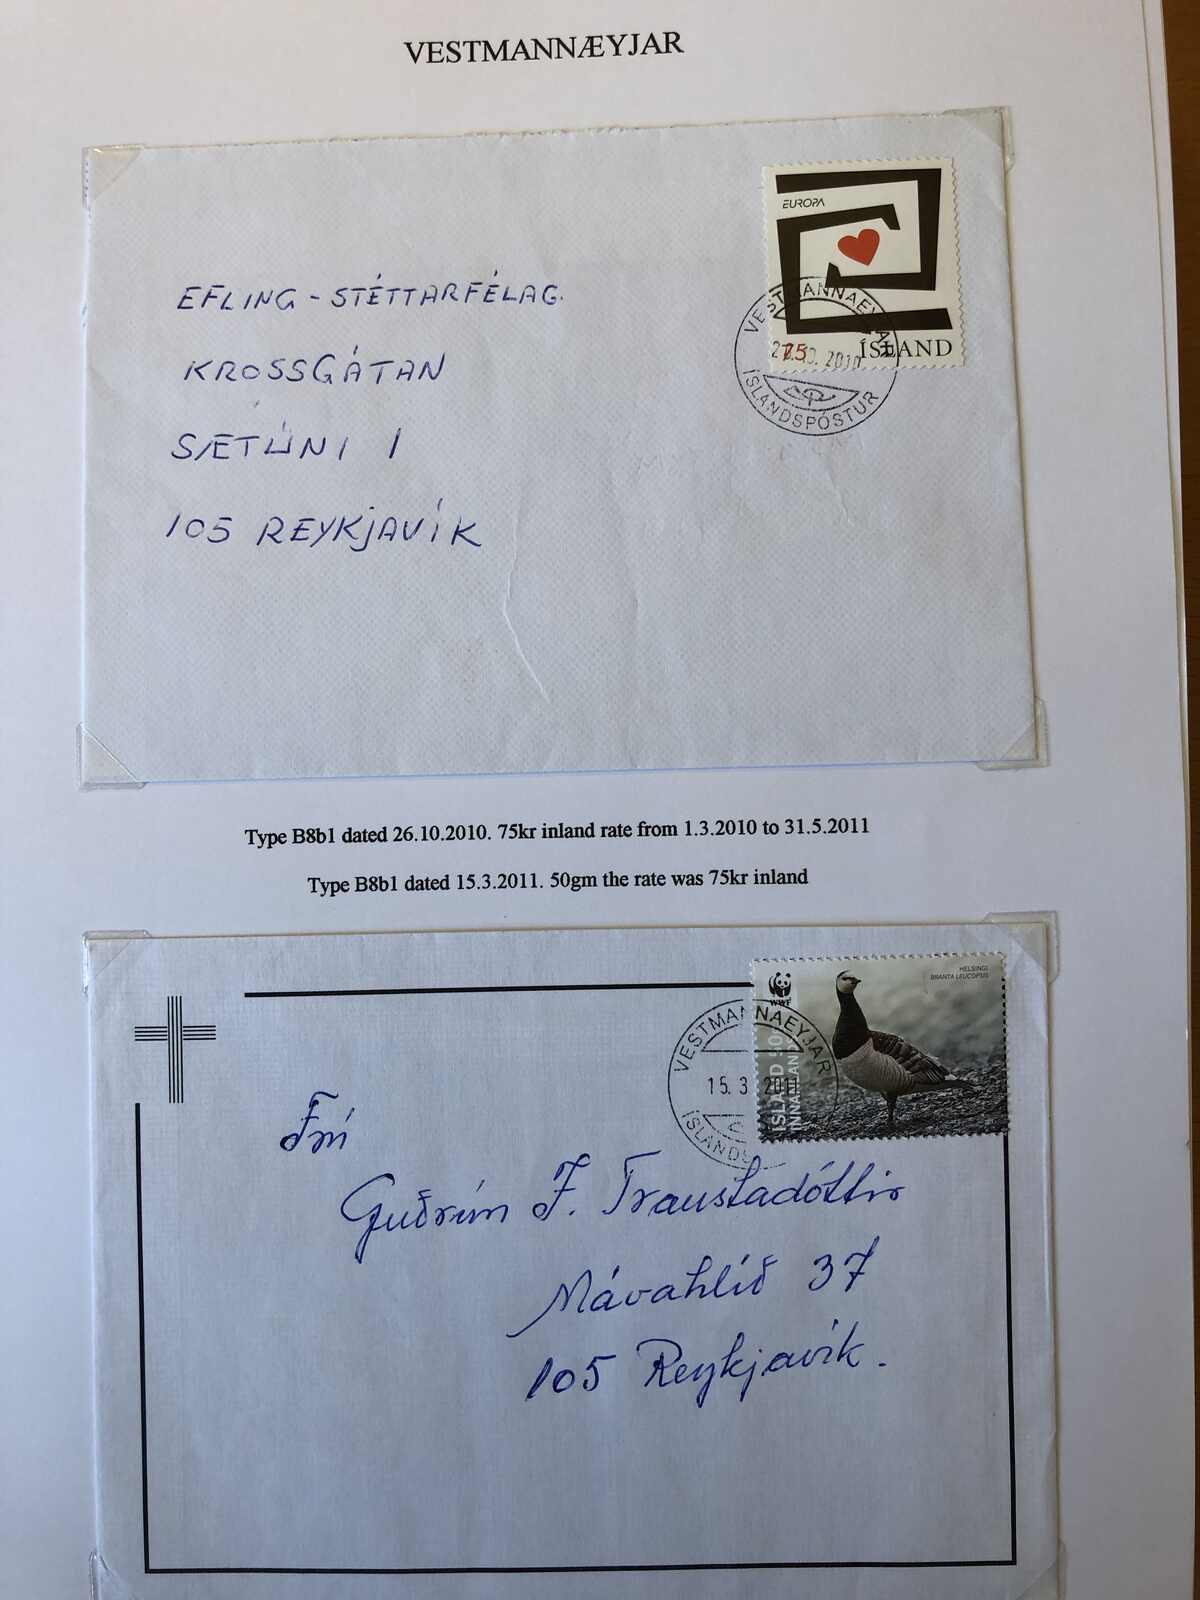 VESTMANNÆYJAR
EUROPA
75 ÍSLAND
VESTMANNAEYJAR
26.10. 2010
ÍSLANDSPÓSTUR
EFLING - STÉTTARFÉLAG.
KROSSGÁTAN
SÆTÚNI 1
105 REYKJAVÍK
Type B8b1 dated 26.10.2010. 75kr inland rate from 1.3.2010 to 31.5.2011
Type B8b1 dated 15.3.2011. 50gm the rate was 75kr inland
HELSINGI
BRANTA LEUCOPSIS
WWF
ÍSLAND 50g
INNANLANDS
VESTMANNAEYJAR
15. 3. 2011
ÍSLANDS
Frú
Guðrún F. Traustadóttir
Mávahlíð 37
105 Reykjavík.